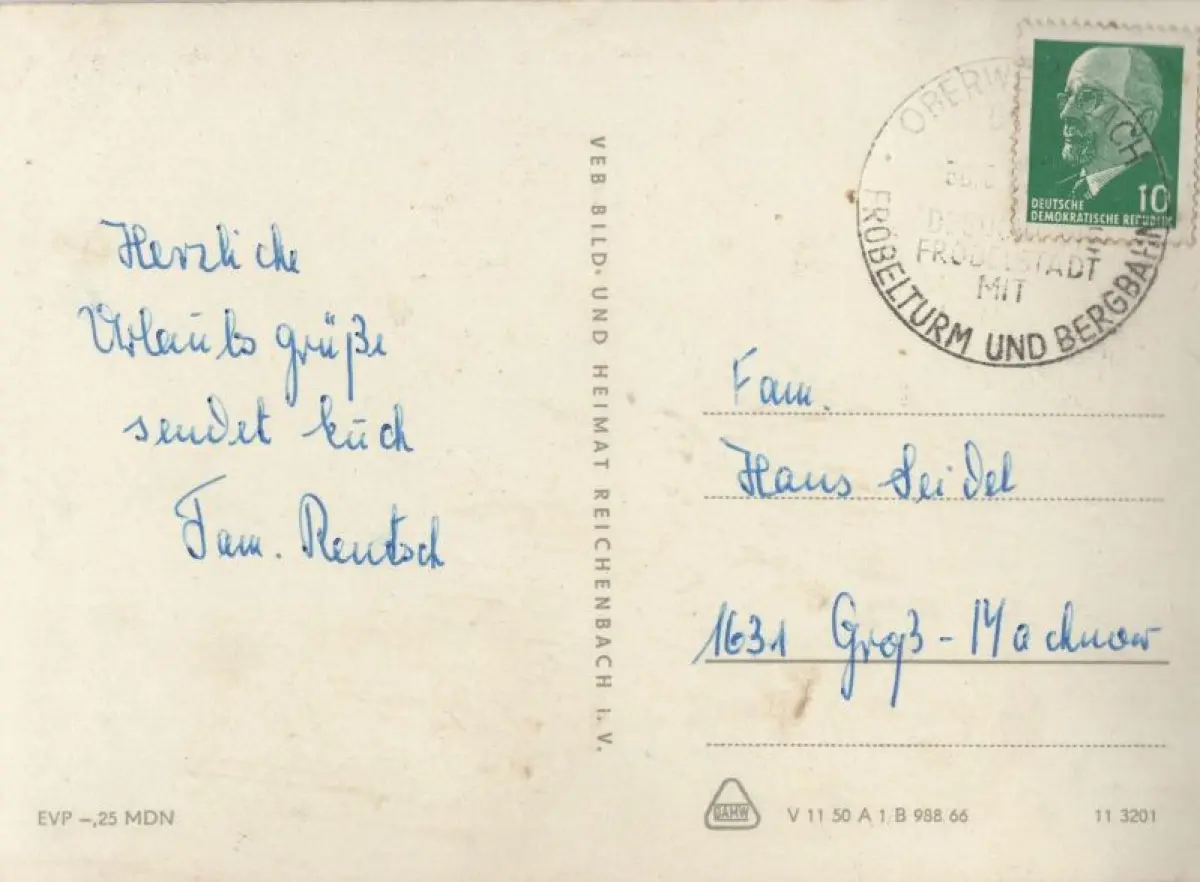 Herzliche
Urlaubs grüße
sendet Euch
Fam. Rentsch
EVP –,25 MDN
VEB BILD- UND HEIMAT REICHENBACH I. V.
DEUTSCHE
DEMOKRATISCHE REPUBLIK
10
FRÖBELSTADT
MIT
FRÖBELTURM UND BERGBAHN
Fam.
Hans Seidel
1631 Groß-Machnow
DAHW
V 11 50 A 1/B 988/66
11 3201